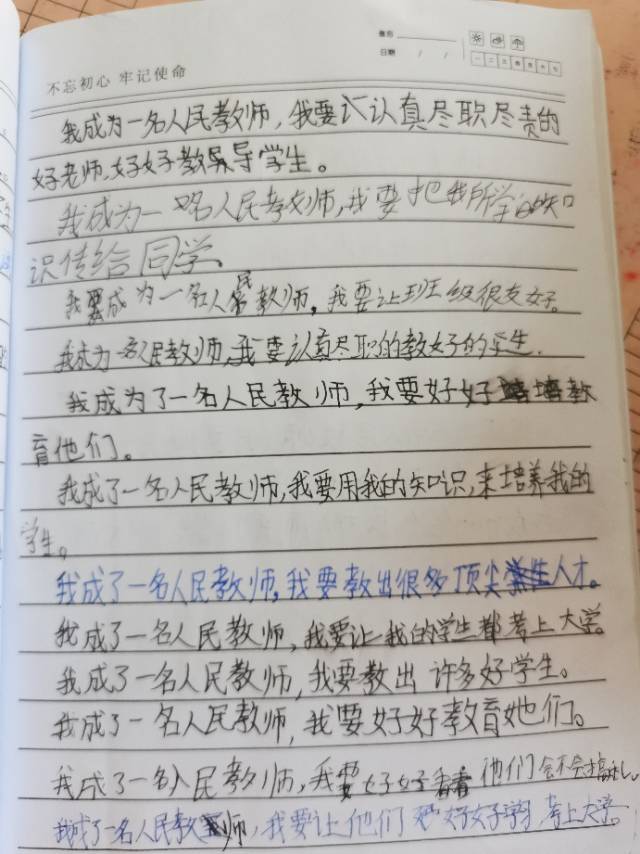 星期
日期 / /
一 二 三 四 五 六 七
不忘初心 牢记使命
我成为一名人民教师,我要认真尽职尽责的
好老师,好好教导学生。
我成为一名人民教师,我要把我所学的知
识传给同学、
我要成为一名人民教师,我要让班级很友好。
我成为一名人民教师,我要认真尽职的教好的学生.
我成为了一名人民教师,我要好好培教
育他们。
我成了一名人民教师,我要用我的知识,来培养我的
学生。
我成了一名人民教师,我要教出很多顶尖人才。
我成了一名人民教师,我要让我的学生都考上大学。
我成了一名人民教师,我要教出许多好学生。
我成了一名人民教师,我要好好教育她们。
我成了一名人民教师,我要好好看看他们会不会
我成了一名人民教师,我要让他们好好学习考上大学。